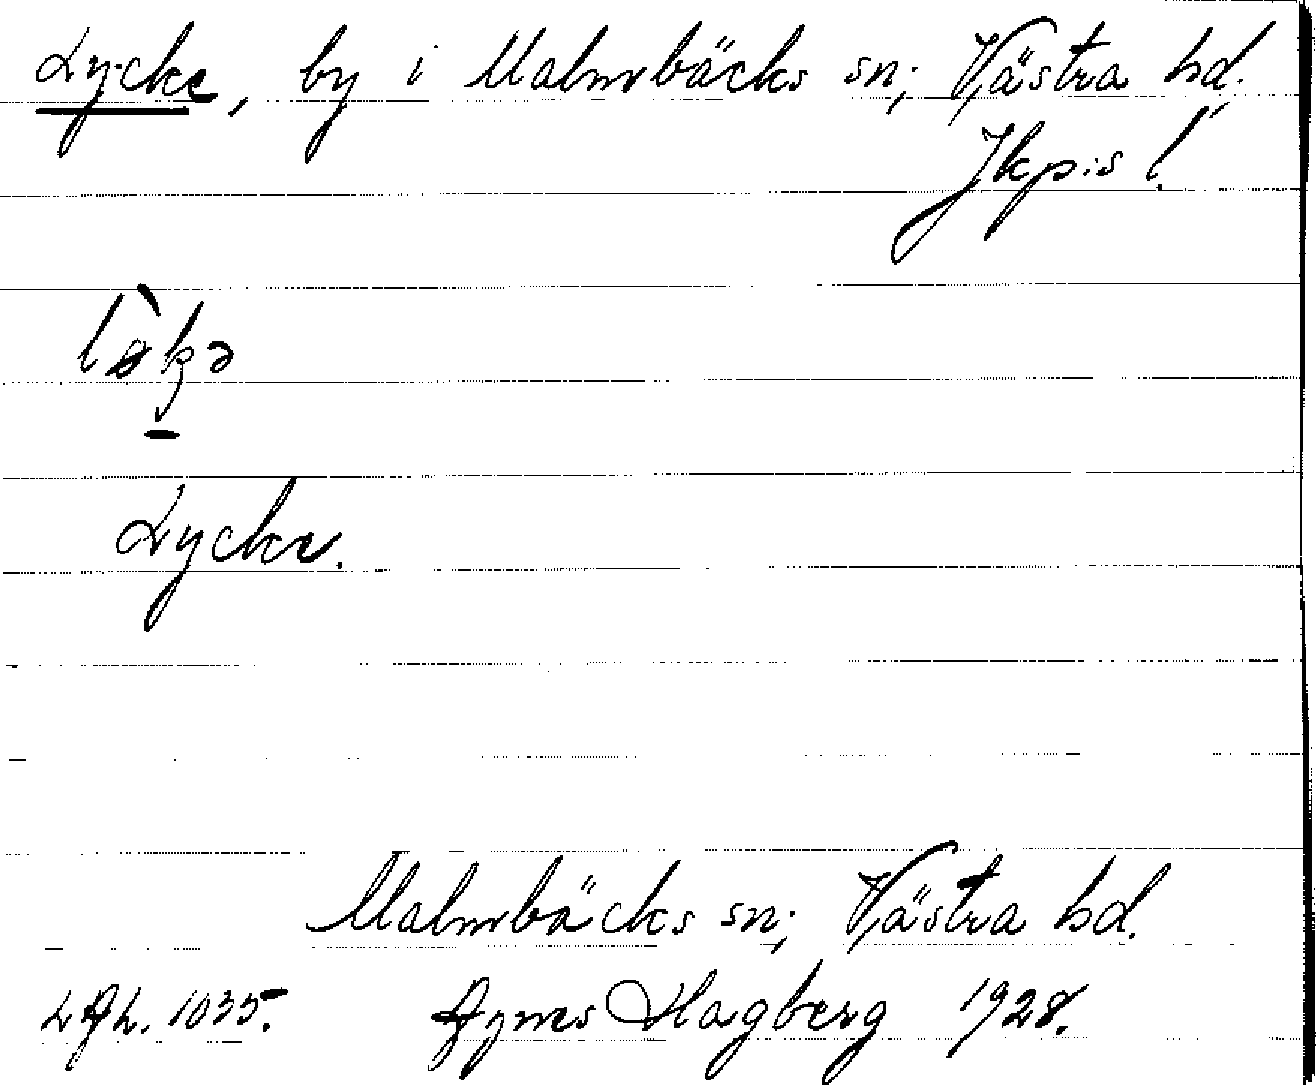 Lycke, by i Malmbäcks sn; Västra hd.
Jkp:s l.
Lycke.
Malmbäcks sn; Västra hd.
1035. Agnes Hagberg 1928.